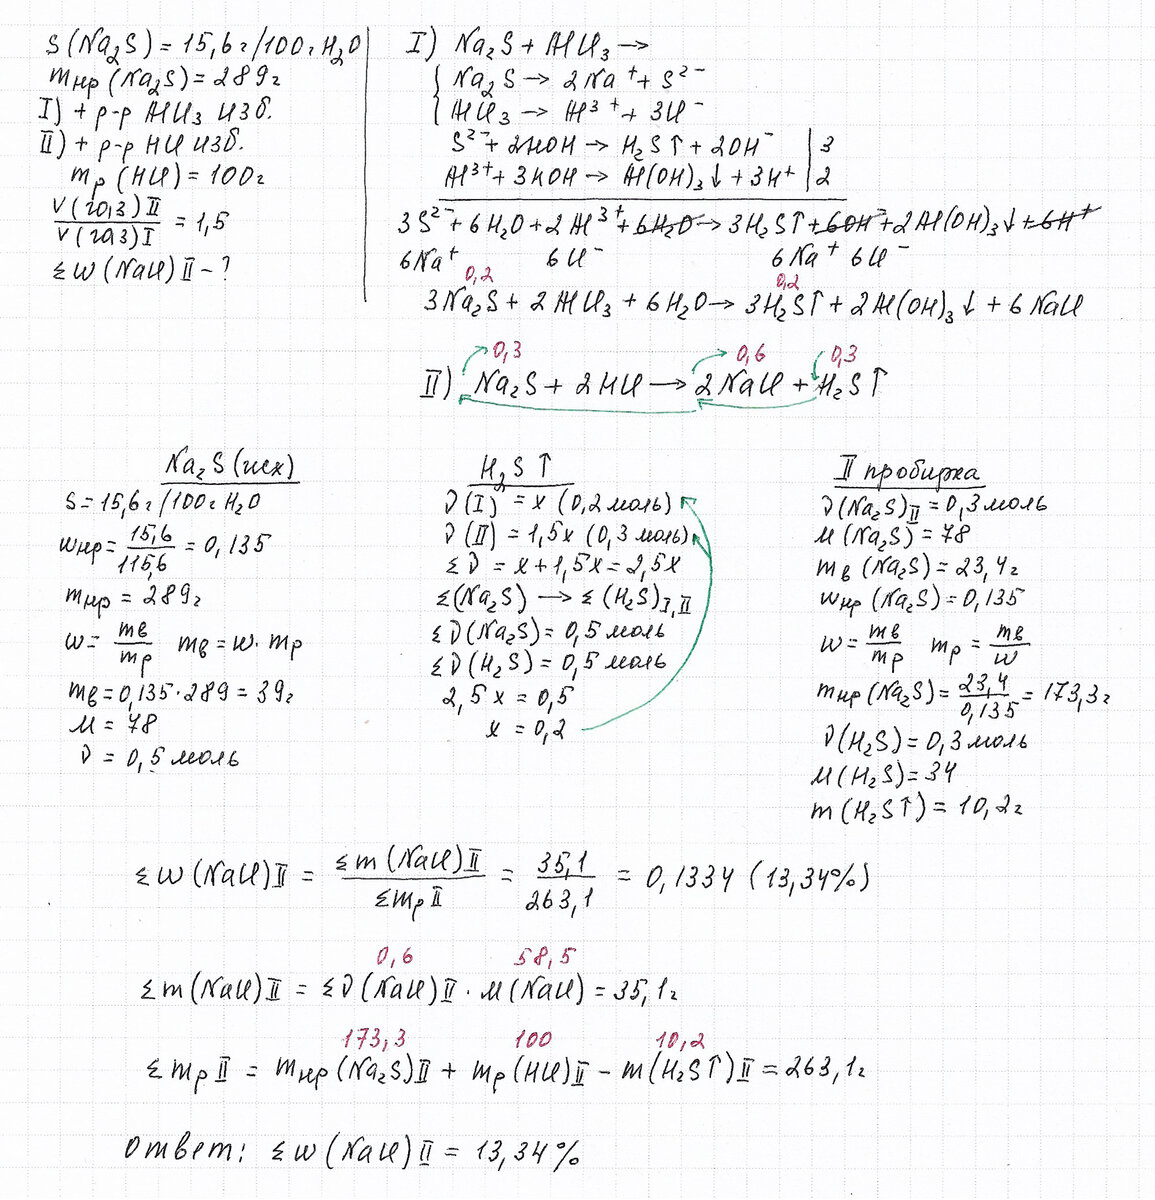 S(Na₂S) = 15,6г/100г H₂O
mнр(Na₂S) = 289г
I) + р-р AlCl₃ изб.
II) + р-р HCl изб.
mр(HCl) = 100г
V(газ)II / V(газ)I = 1,5
Σω(NaCl)II - ?
I) Na₂S + AlCl₃ →
{ Na₂S → 2Na⁺ + S²⁻
{ AlCl₃ → Al³⁺ + 3Cl⁻
S²⁻ + 2HOH → H₂S↑ + 2OH⁻ | 3
Al³⁺ + 3HOH → Al(OH)₃↓ + 3H⁺ | 2
3S²⁻ + 6H₂O + 2Al³⁺ + 6H₂O → 3H₂S↑ + 6OH⁻ + 2Al(OH)₃↓ + 6H⁺
6Na⁺ 6Cl⁻ 6Na⁺ 6Cl⁻
0,2 0,2
3Na₂S + 2AlCl₃ + 6H₂O → 3H₂S↑ + 2Al(OH)₃↓ + 6NaCl
0,3 0,6 0,3
II) Na₂S + 2HCl → 2NaCl + H₂S↑
Na₂S (исх)
S = 15,6г/100г H₂O
ωнр = 15,6/115,6 = 0,135
mнр = 289г
ω = mв/mр mв = ω · mр
mв = 0,135 · 289 = 39г
M = 78
ν = 0,5 моль
H₂S↑
ν(I) = x (0,2 моль)
ν(II) = 1,5x (0,3 моль)
Σν = x + 1,5x = 2,5x
Σ(Na₂S) → Σ(H₂S)I,II
Σν(Na₂S) = 0,5 моль
Σν(H₂S) = 0,5 моль
2,5x = 0,5
x = 0,2
II пробирка
ν(Na₂S)II = 0,3 моль
M(Na₂S) = 78
mв(Na₂S) = 23,4г
ωнр(Na₂S) = 0,135
ω = mв/mр mр = mв/ω
mнр(Na₂S) = 23,4/0,135 = 173,3г
ν(H₂S) = 0,3 моль
M(H₂S) = 34
m(H₂S↑) = 10,2г
Σω(NaCl)II = Σm(NaCl)II / ΣmрII = 35,1/263,1 = 0,1334 (13,34%)
0,6 58,5
Σm(NaCl)II = Σν(NaCl)II · M(NaCl) = 35,1г
173,3 100 10,2
ΣmрII = mнр(Na₂S)II + mр(HCl)II - m(H₂S↑)II = 263,1г
Ответ: Σω(NaCl)II = 13,34%